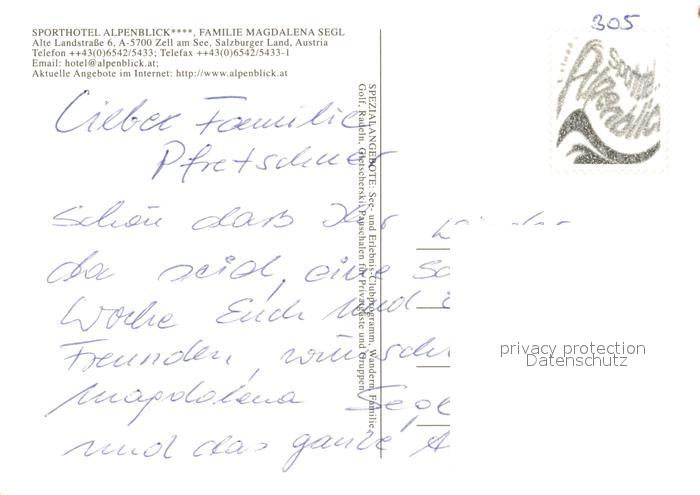 SPORTHOTEL ALPENBLICK****, FAMILIE MAGDALENA SEGL
Alte Landstraße 6, A-5700 Zell am See, Salzburger Land, Austria
Telefon ++43(0)6542/5433; Telefax ++43(0)6542/5433-1
Email: hotel@alpenblick.at;
Aktuelle Angebote im Internet: http://www.alpenblick.at
305
Sporthotel
Alpenblick
Lieber Familie
Pfretschner
Schön daß Ihr
da seid, eine
Woche Euch und
Freunden,
Magdalena Segl
und das ganze A
SPEZIALANGEBOTE: See- und Erlebnis-Clubprogramm, Wandern, Familie,
Golf, Radeln, Gletscherski, Pauschalen für Privatgäste und Gruppen
privacy protection
Datenschutz